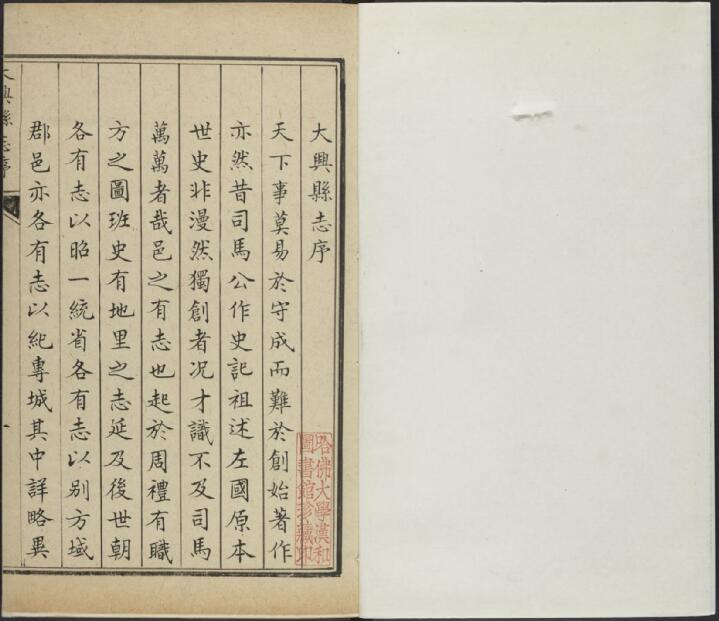 大興縣志序
天下事莫易於守成而難於創始著作
亦然昔司馬公作史記祖述左國原本
世史非漫然獨創者况才識不及司馬
萬萬者哉邑之有志也起於周禮有職
方之圖班史有地里之志延及後世朝
各有志以昭一統省各有志以別方域
郡邑亦各有志以紀專城其中詳略異
哈佛大學漢和
圖書館珍藏印
大興縣志序
一